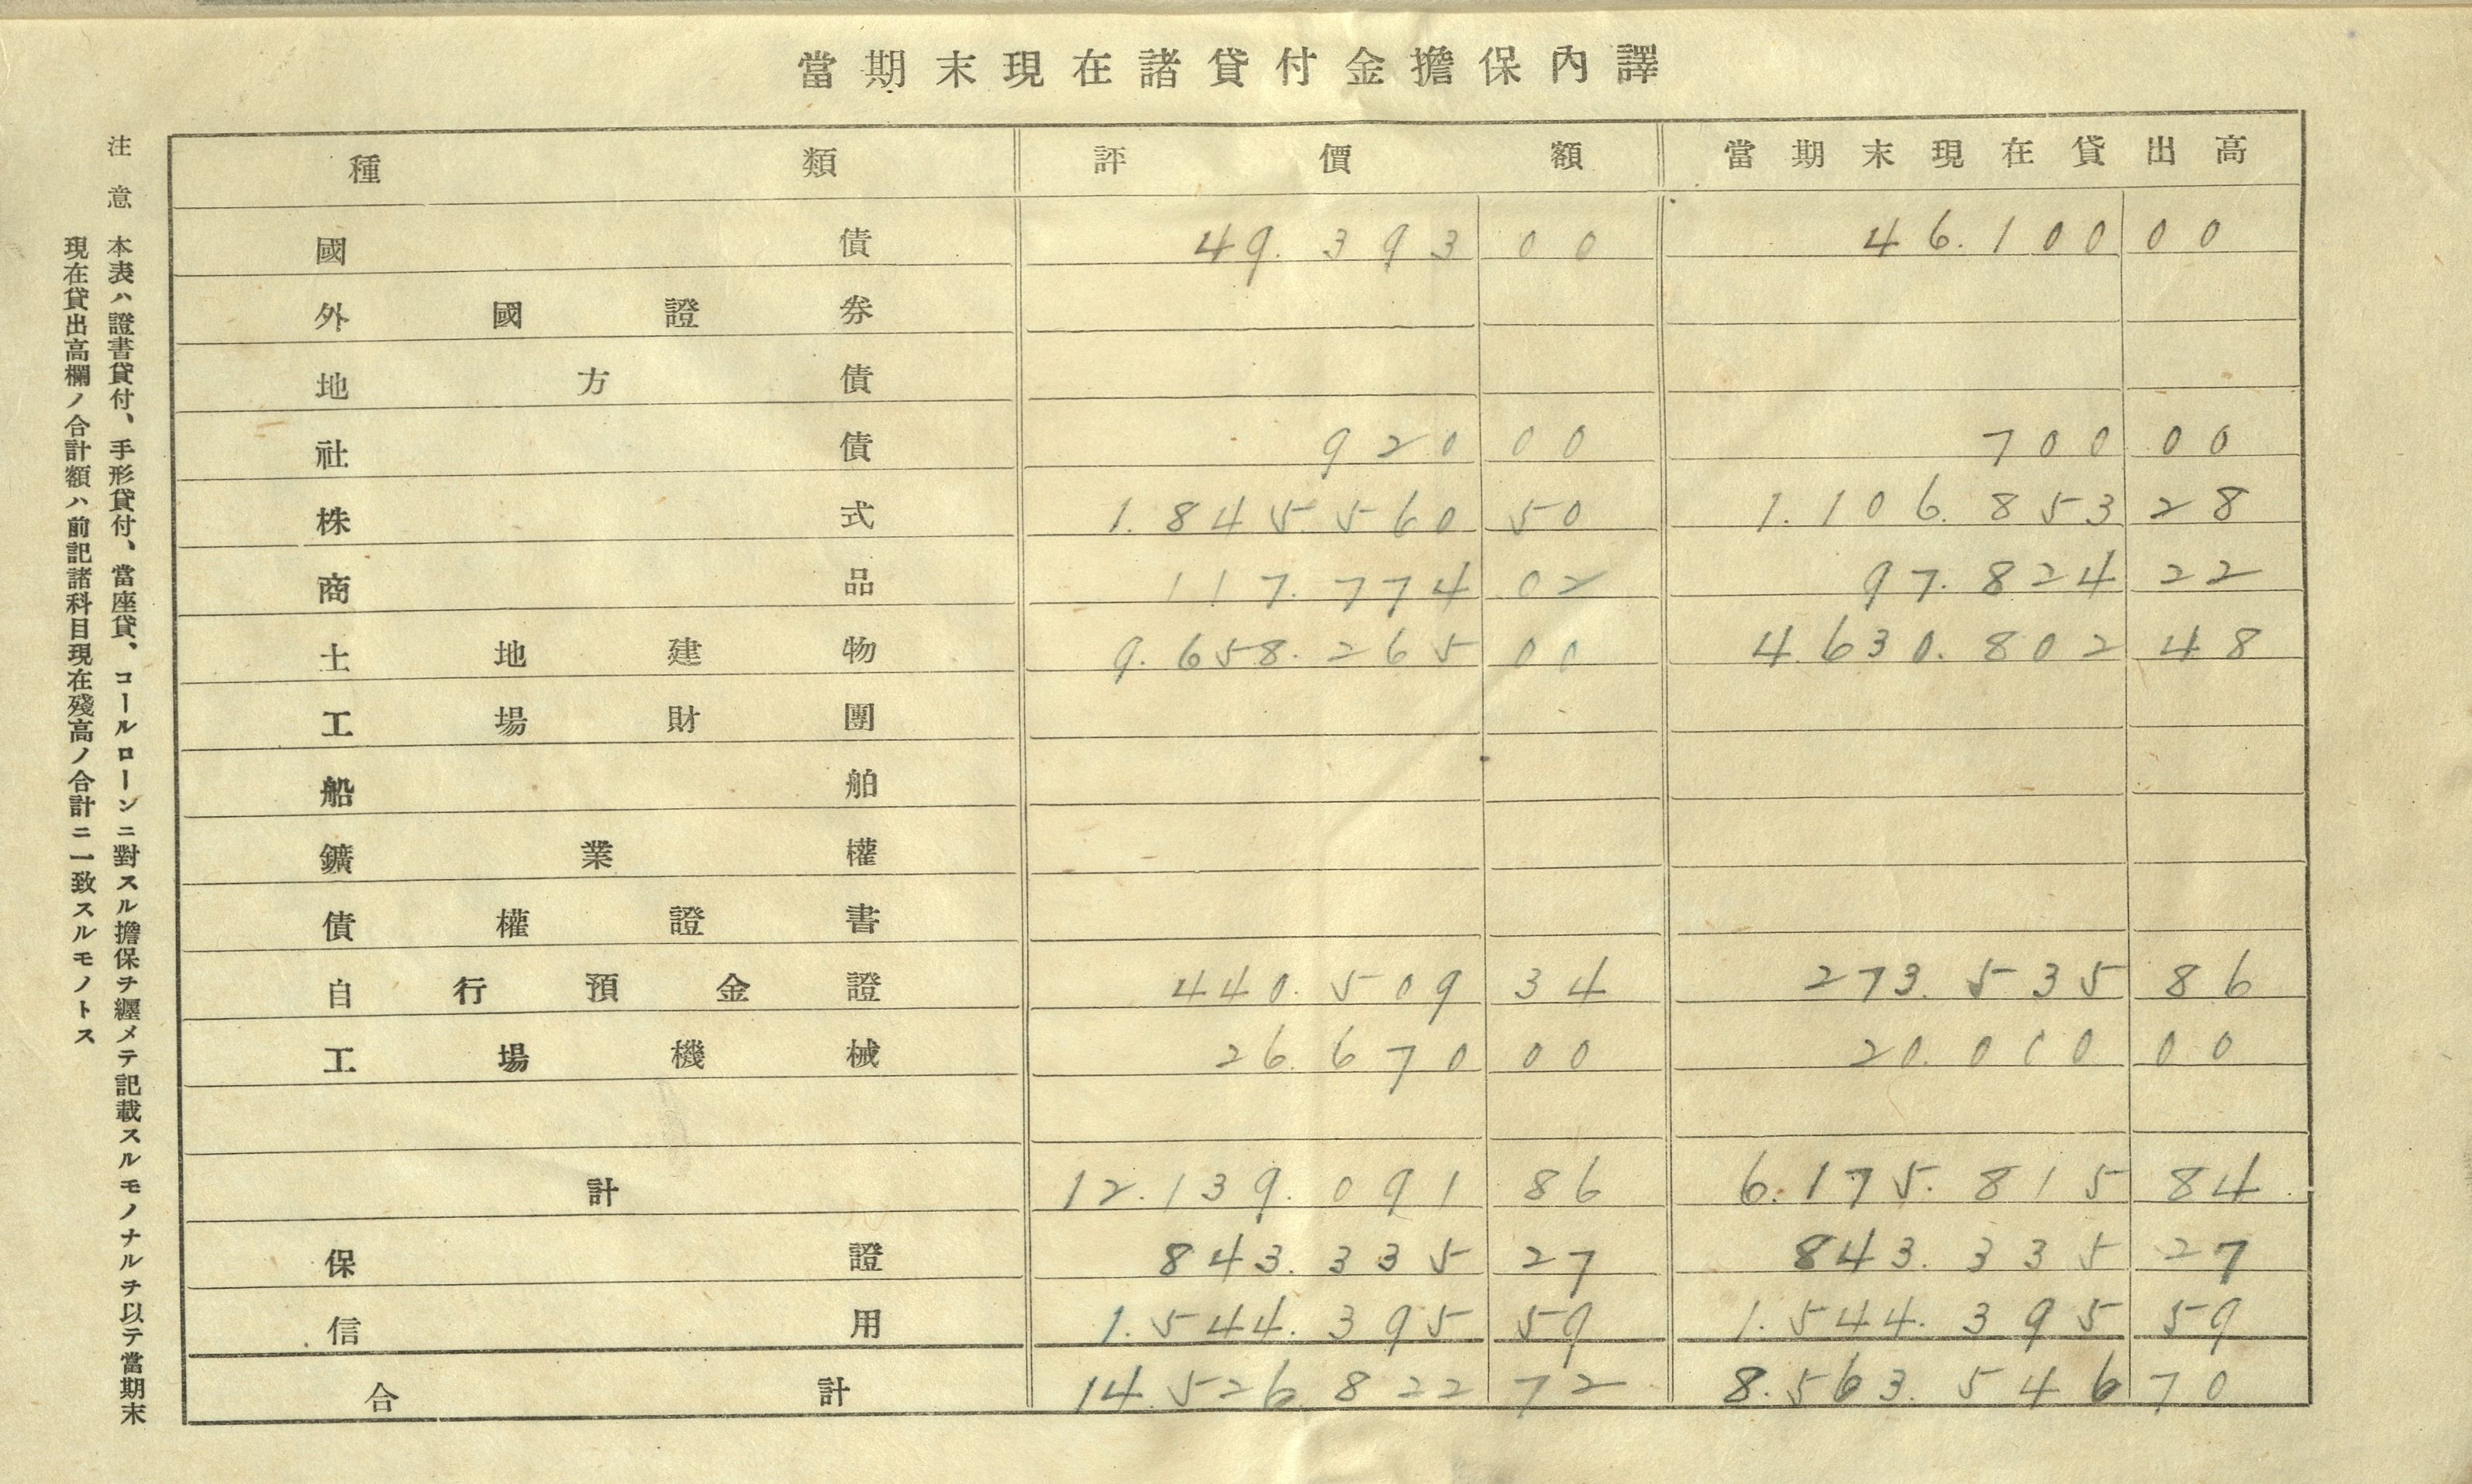 當期末現在諸貸付金擔保內譯
種類 評價額 當期末現在貸出高
國債 49.393 00 46.100 00
外國證券
地方債
社債 920 00 700 00
株式 1.845.560 50 1.106.853 28
商品 117.774 02 97.824 22
土地建物 9.658.265 00 4.630.802 48
工場財團
船舶
鑛業權
債權證書
自行預金證 440.509 34 273.535 86
工場機械 26.670 00 20.000 00
計 12.139.091 86 6.175.815 84
保證 843.335 27 843.335 27
信用 1.544.395 59 1.544.395 59
合計 14.526.822 72 8.563.546 70
注意 本表ハ證書貸付、手形貸付、當座貸、コールローンニ對スル擔保ヲ纒メテ記載スルモノナルヲ以テ當期末
現在貸出高欄ノ合計額ハ前記諸科目現在殘高ノ合計ニ一致スルモノトス